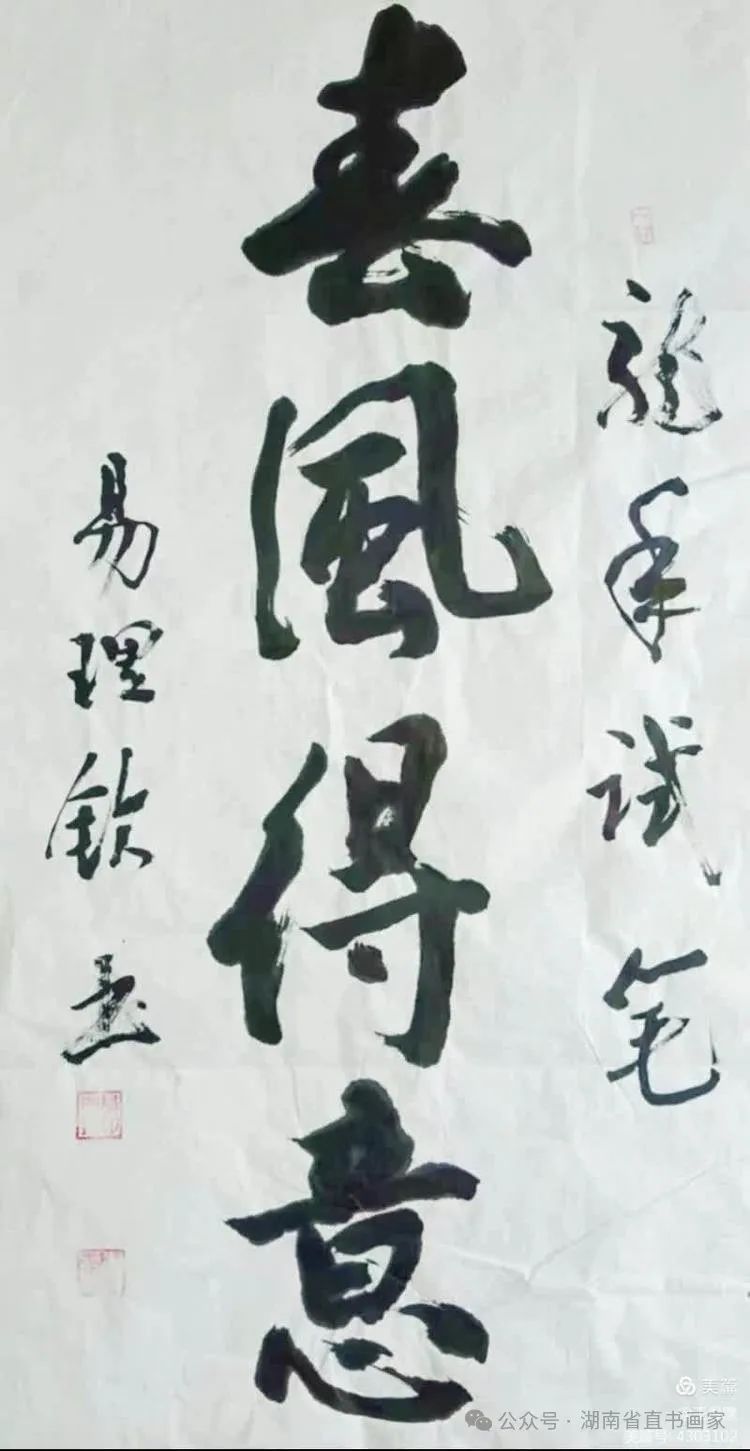 龍年试笔
春風得意
易理欽書
美篇
公众号·湖南省直书画家
美篇号:4303102